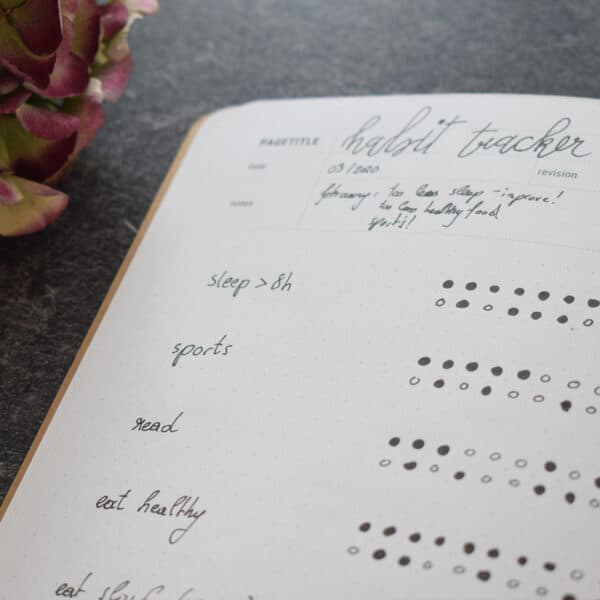 PAGETITLE habit tracker
date 03/2020
revision
notes february: too less sleep - improve!
too less healthy food
sports!
sleep > 8h
sports
read
eat healthy
eat